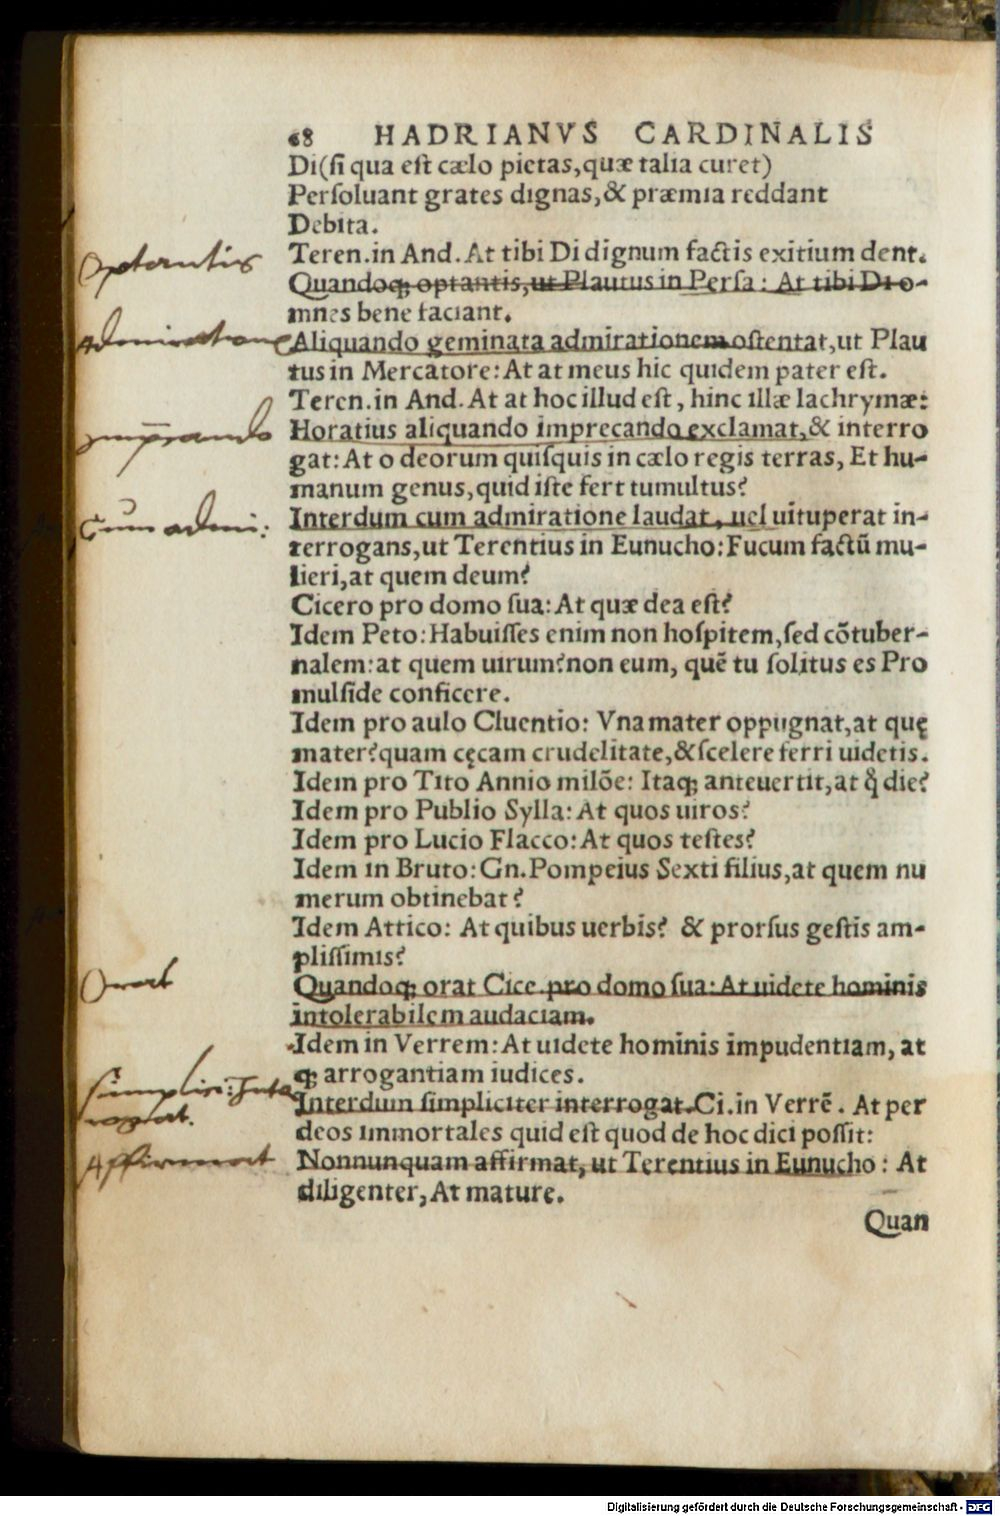 68 HADRIANVS CARDINALIS
Di(ſi qua eſt cælo pietas,quæ talia curet)
Perſoluant grates dignas,& præmia reddant
Debita.
Optantis
Teren.in And.At tibi Di dignum factis exitium dent.
Quandoq; optantis,ut Plautus in Perſa: At tibi Di o-
mnes bene faciant.
Admirationē Aliquando geminata admirationem oſtentat,ut Plau
tus in Mercatore: At at meus hic quidem pater eſt.
Teren.in And. At at hoc illud eſt, hinc illæ lachrymæ:
Horatius aliquando imprecando exclamat,& interro
gat: At o deorum quiſquis in cælo regis terras, Et hu-
manum genus,quid iſte fert tumultus?
Cum admi:
Interdum cum admiratione laudat, uel uituperat in-
terrogans,ut Terentius in Eunucho: Fucum factū mu-
lieri,at quem deum?
Cicero pro domo ſua: At quæ dea eſt?
Idem Peto: Habuiſſes enim non hoſpitem,ſed cōtuber-
nalem: at quem uirum? non eum, quē tu ſolitus es Pro
mulſide conficere.
Idem pro aulo Cluentio: Vna mater oppugnat,at quę
mater? quam cęcam crudelitate,& ſcelere ferri uidetis.
Idem pro Tito Annio milōe: Itaq; anteuertit,at q̊ die?
Idem pro Publio Sylla: At quos uiros?
Idem pro Lucio Flacco: At quos teſtes?
Idem in Bruto: Gn.Pompeius Sexti filius,at quem nu
merum obtinebat?
Idem Attico: At quibus uerbis? & prorſus geſtis am-
pliſſimis?
Orat
Quandoq; orat Cice.pro domo ſua: At uidete hominis
intolerabilem audaciam.
Idem in Verrem: At uidete hominis impudentiam, at
q; arrogantiam iudices.
Simplici: Inte
rogat.
Interdum ſimpliciter interrogat. Ci.in Verrē. At per
deos immortales quid eſt quod de hoc dici poſſit:
Affirmat
Nonnunquam affirmat, ut Terentius in Eunucho: At
diligenter, At mature.
Quan
Digitalisierung gefördert durch die Deutsche Forschungsgemeinschaft - DFG